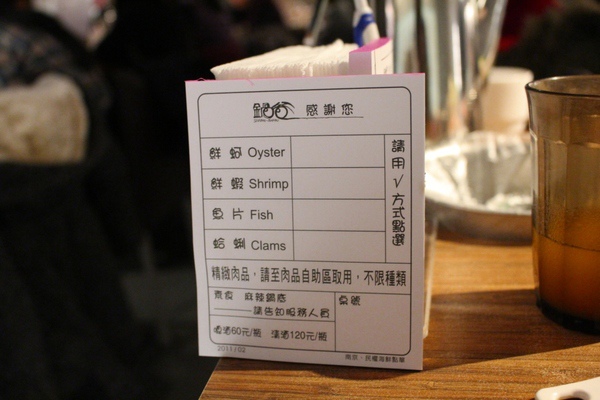 鍋 感謝您
鮮蚵 Oyster
鮮蝦 Shrimp
魚片 Fish
蛤蜊 Clams
請用√方式點選
精緻肉品，請至肉品自助區取用，不限種類
素食 麻辣鍋底
請告知服務人員
桌號
啤酒60元/瓶 清酒120元/瓶
2011/02
南京、民權海鮮點單